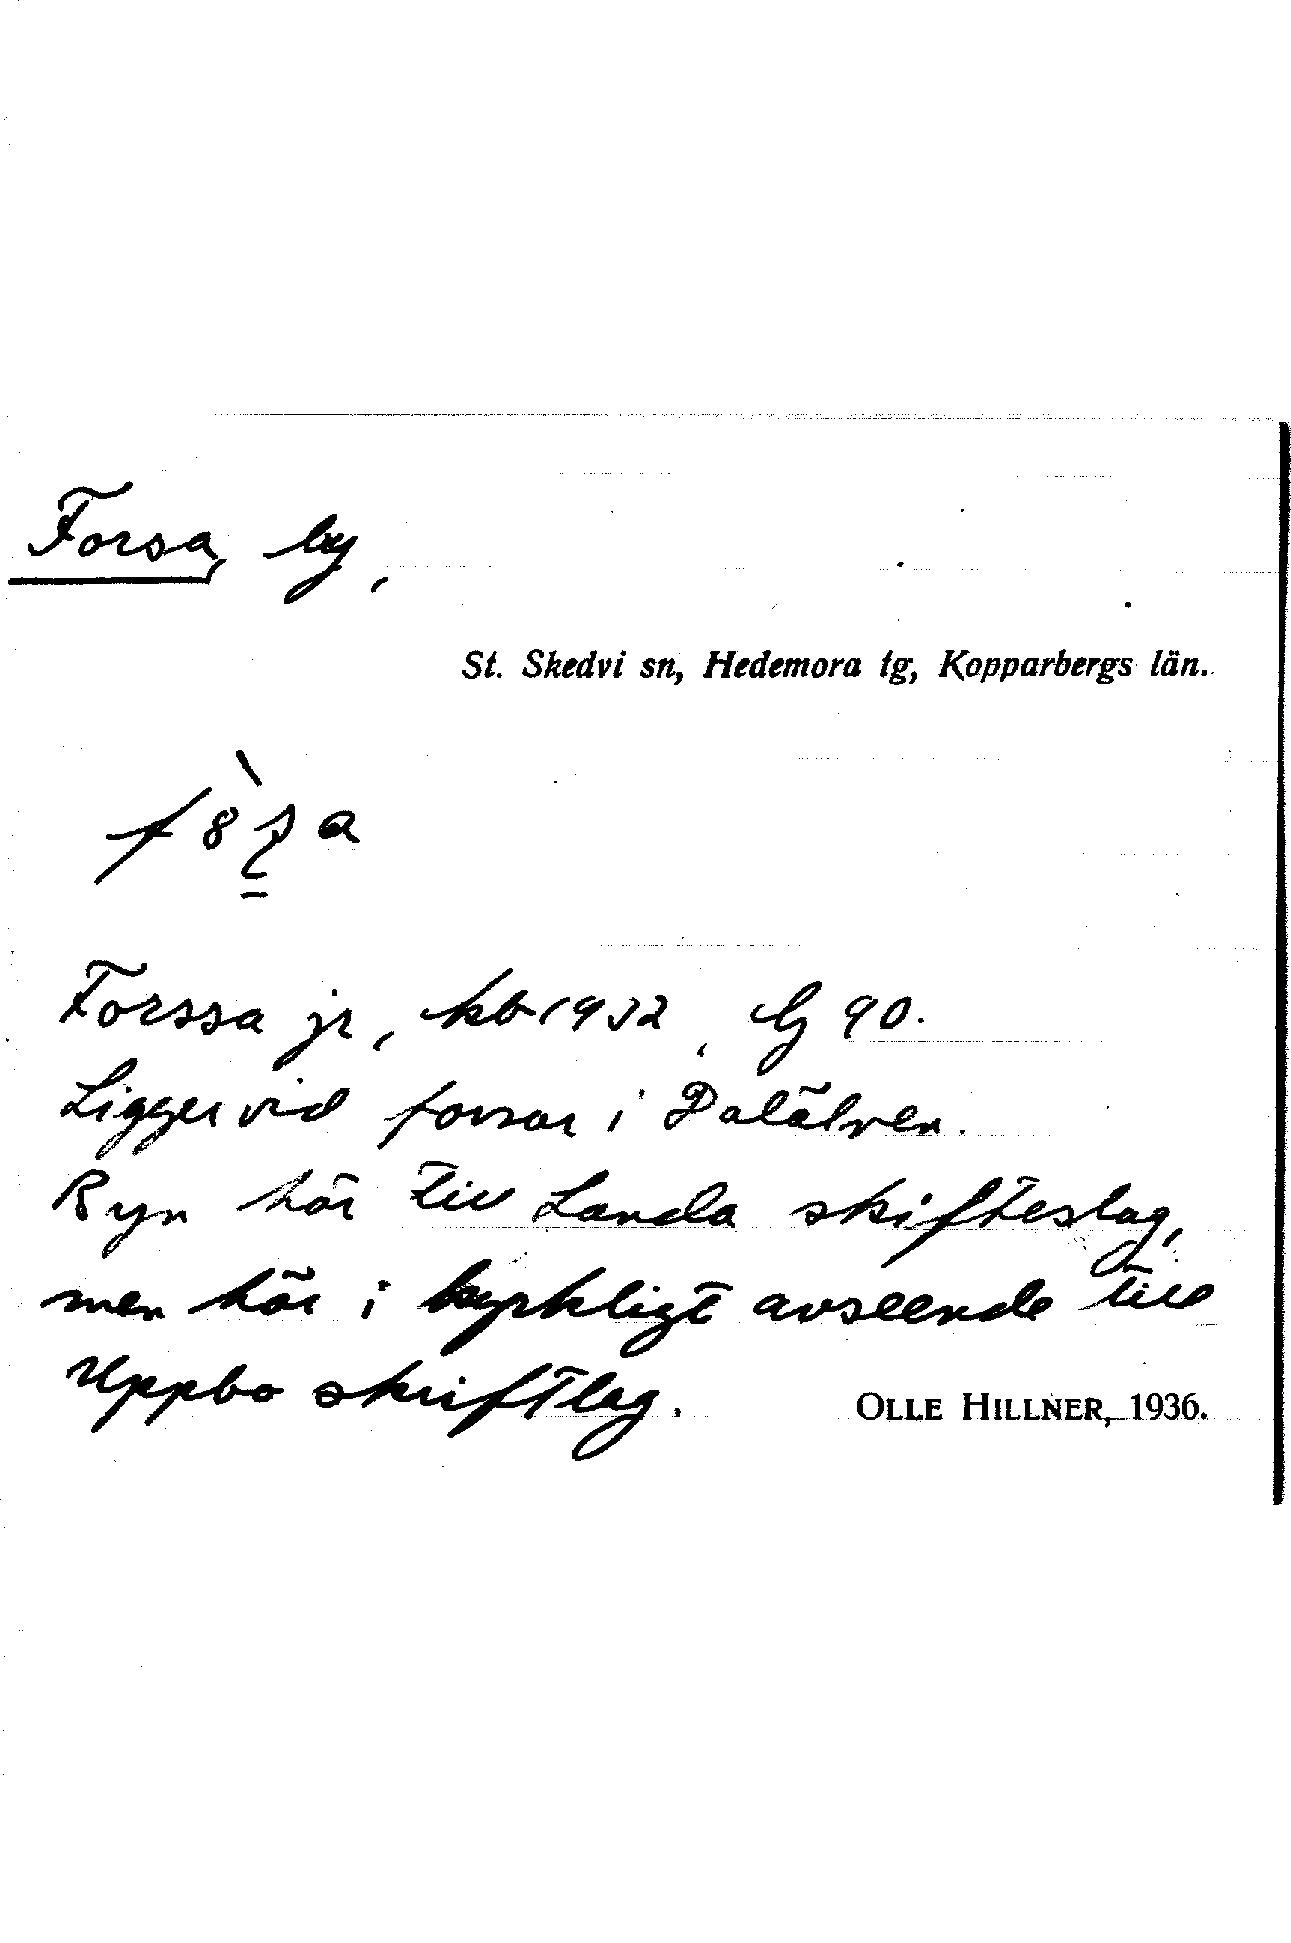 Forsa, by,
St. Skedvi sn, Hedemora tg, Kopparbergs län.
Forssa jr, kb 1932, by 90.
Ligger vid forsar i Dalälven.
Byn hör till Landa skifteslag,
men hör i kyrkligt avseende till
Uppbo skriftlag.
OLLE HILLNER, 1936.